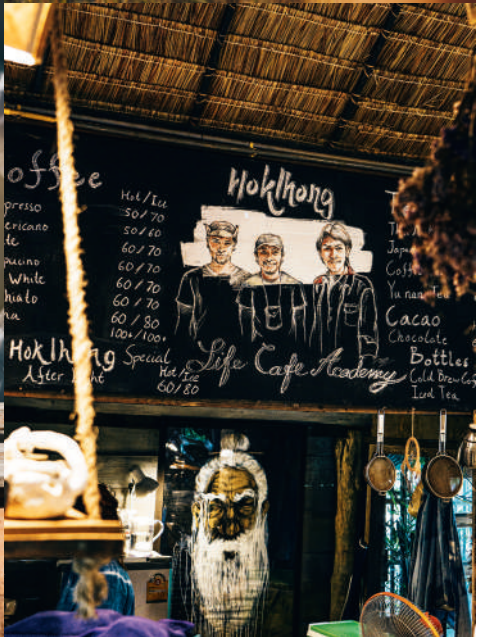 offee
Hot/Ice
presso 50/70
ericano 50/60
te 60/70
pucino 60/70
White 60/70
chiato 60/70
ha 60/80
100+/100+
HoklHong Special
After Light Hot/Ice
60/80
HoklHong
Life Cafe Academy
Japa
Coff
Yunnan Tea
Cacao
Chocolate
Bottles
Cold Brew Cof
Iced Tea